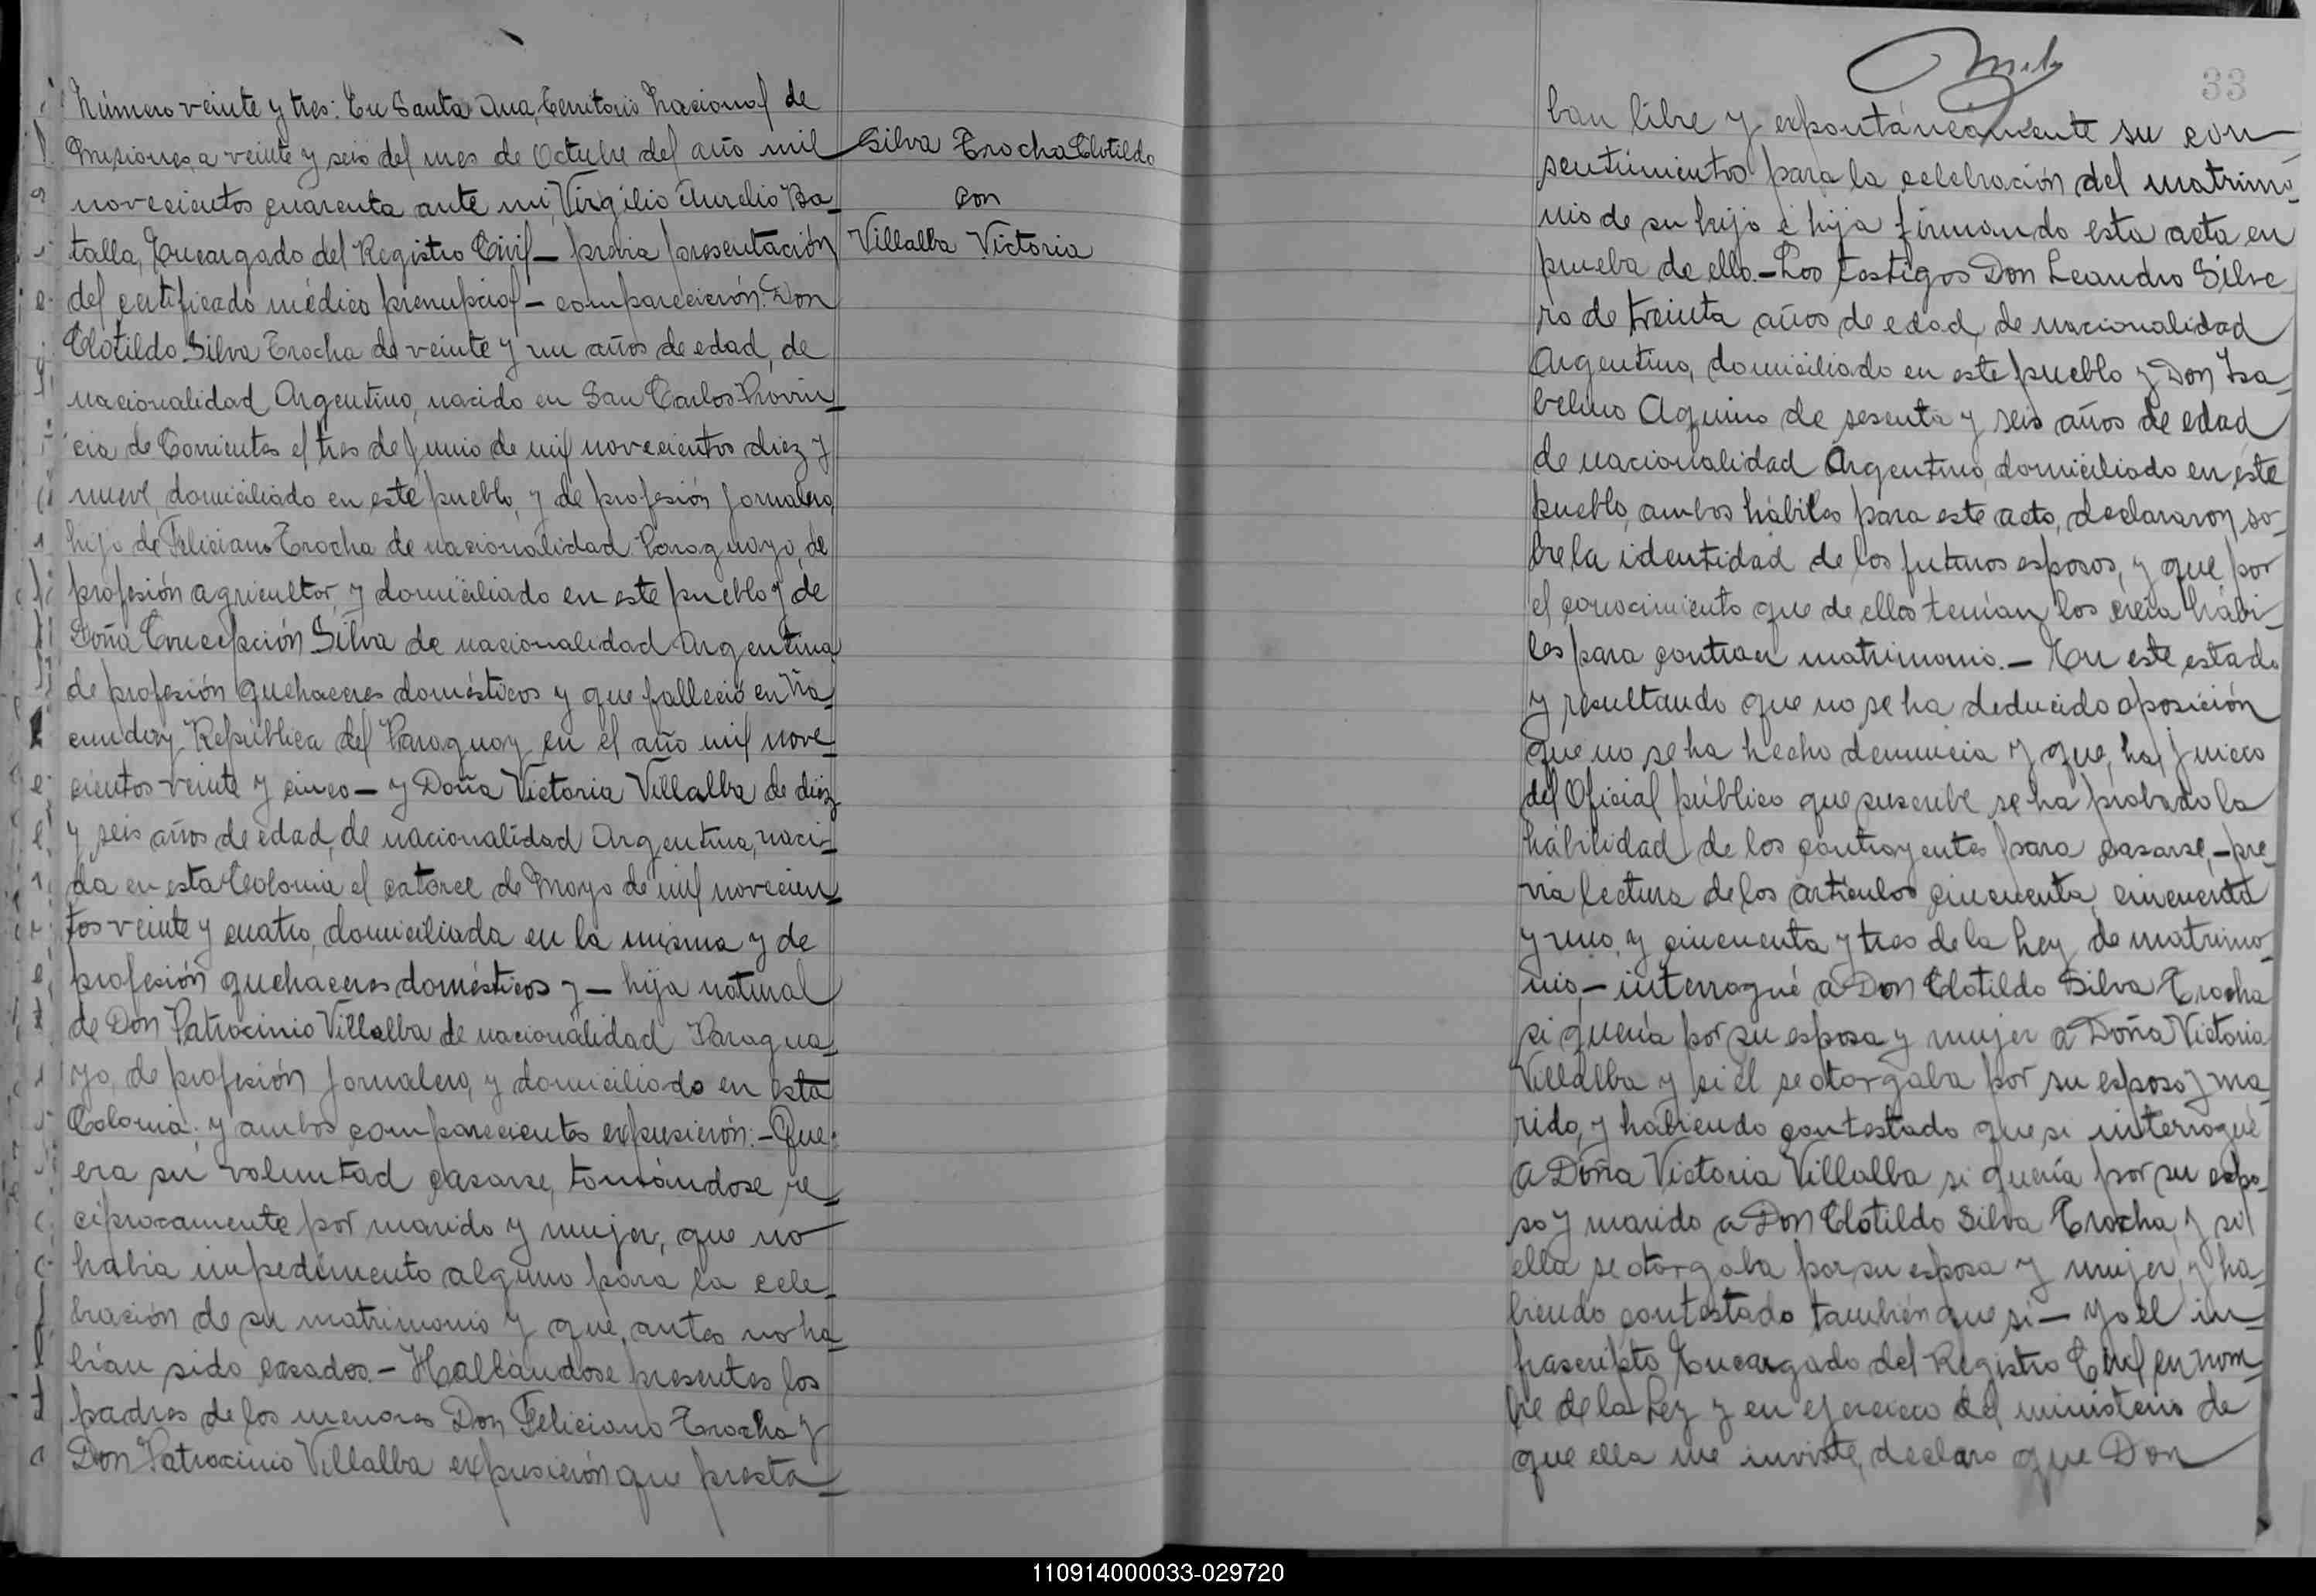 Número veinte y tres: En Santa Ana, Territorio Nacional de
Misiones, a veinte y seis del mes de Octubre del año mil
novecientos cuarenta ante mi, Virgilio Aurelio Ba-
talla, Encargado del Registro Civil - previa presentación
del certificado médico prenupcial - comparecieron: Don
Clotildo Silva Trocha de veinte y un años de edad, de
nacionalidad Argentino, nacido en San Carlos Provin-
cia de Corrientes el tres de Junio de mil novecientos diez y
nueve, domiciliado en este pueblo, y de profesión Jornalero,
hijo de Feliciano Trocha de nacionalidad Paraguayo, de
profesión agricultor, y domiciliado en este pueblo y de
Doña Concepción Silva de nacionalidad Argentina,
de profesión quehaceres domésticos y que falleció en Ña-
cunday República del Paraguay en el año mil nove-
cientos veinte y cinco - y Doña Victoria Villalba de diez
y seis años de edad, de nacionalidad Argentina, naci-
da en esta Colonia el catorce de Mayo de mil novecien-
tos veinte y cuatro, domiciliada en la misma y de
profesión quehaceres domésticos y - hija natural
de Don Patrocinio Villalba de nacionalidad Paragua-
yo, de profesión Jornalero, y domiciliado en esta
Colonia; y ambos comparecientes expusieron: - Que:
era su voluntad casarse, tomándose re-
ciprocamente por marido y mujer, que no
había impedimento alguno para la cele-
bración de su matrimonio y que, antes no ha-
bían sido casados. - Hallándose presentes los
padres de los menores Don Feliciano Trocha y
Don Patrocinio Villalba expusieron que presta-
Silva Trocha Clotildo
con
Villalba Victoria
33
ban libre y expontáneamente su con-
sentimiento para la celebración del matrimo-
nio de su hijo é hija firmando esta acta en
prueba de ello. - Los testigos Don Leandro Silve-
ro de treinta años de edad, de nacionalidad
Argentino, domiciliado en este pueblo y Don Isa-
belino Aquino de sesenta y seis años de edad
de nacionalidad Argentino, domiciliado en este
pueblo, ambos hábiles para este acto, declararon so-
bre la identidad de los futuros esposos, y que por
el conocimiento que de ellos tenían los creía hábi-
les para contraer matrimonio. - En este estado
y resultando que no se ha deducido oposición
que no se ha hecho denuncia y que, ha juicio
del Oficial público que suscribe se ha probado la
habilidad de los contrayentes para casarse, - pre-
via lectura de los artículos cincuenta, cincuenta
y uno, y cincuenta y tres de la Ley de matrimo-
nio, - interrogué a Don Clotildo Silva Trocha
si quería por su esposa y mujer a Doña Victoria
Villalba y si él se otorgaba por su esposo y ma-
rido, y habiendo contestado que si interrogué
a Doña Victoria Villalba si quería por su espo-
so y marido a Don Clotildo Silva Trocha, y si
ella se otorgaba por su esposa y mujer, y ha-
biendo contestado también que si - Yo el in-
frascripto Encargado del Registro Civil en nom-
bre de la Ley y en ejercicio del ministerio de
que ella me inviste, declaro que Don
110914000033-029720